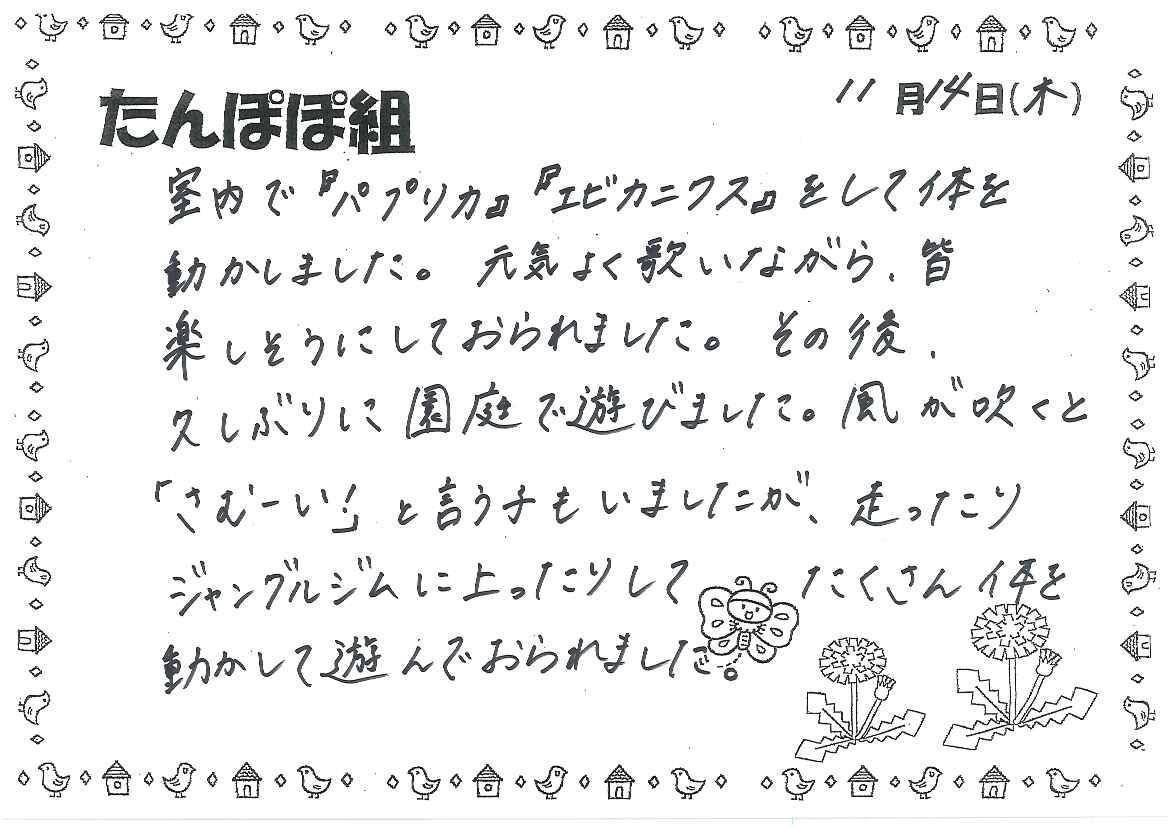 たんぽぽ組
11月14日(木)
室内で『パプリカ』『エビカニクス』をして体を
動かしました。元気よく歌いながら、皆
楽しそうにしておられました。その後、
久しぶりに園庭で遊びました。風が吹くと
「さむーい!」と言う子もいましたが、走ったり
ジャングルジムに上ったりして たくさん体を
動かして遊んでおられました。